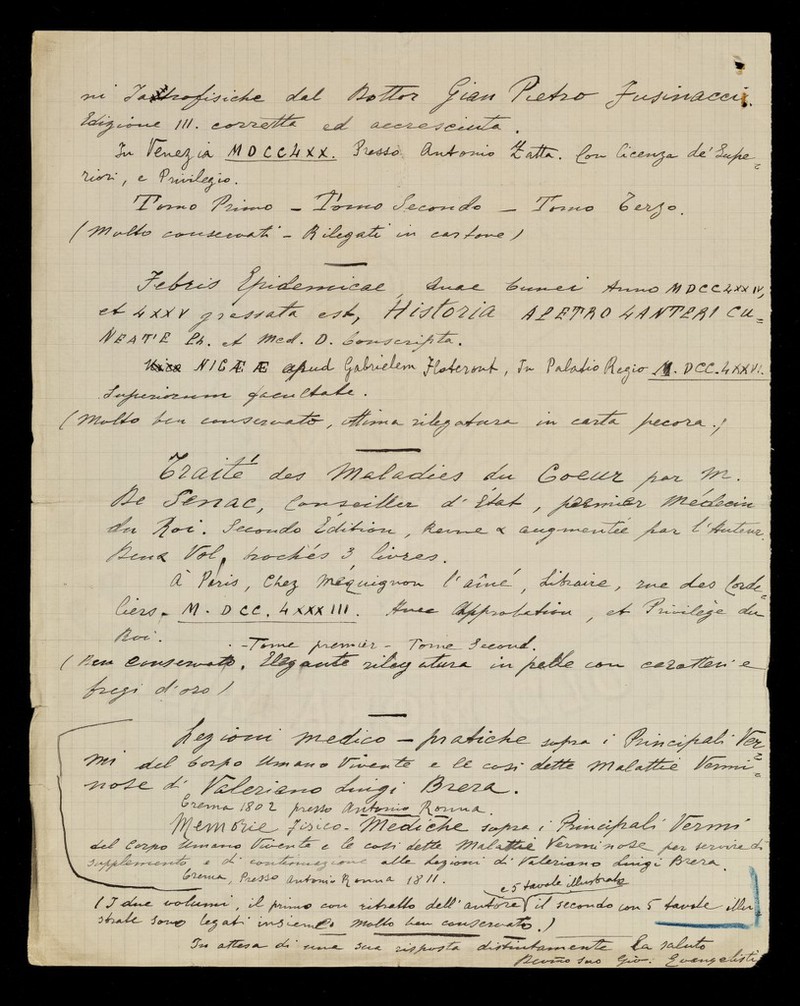 ni Iatrofisiche dal Dottor Gian Pietro Fusinacci.
Edizione III. corretta ed accresciuta.
In Venezia MDCCLXX. Presso Antonio Zatta. Con licenza de' Supe=
riori, e Privilegio.
Tomo Primo - Tomo Secondo - Tomo Terzo.
(Molto conservati - Rilegati in cartone)
Febris Epidemicae, quae Cunei Anno MDCCLXXIV,
et LXXV grassata est, Historia A PETRO LANTERI CU=
NEATE Ph. et Med. D. Conscripta.
NICÆÆ apud Gabrielem Floteront, In Palatio Regio M.DCC.LXXVI.
Superiorum facultate.
(Molto ben conservato, ottima rilegatura in carta pecora.)
Traité des Maladies du Coeur par M.
De Senac, Conseiller d'État, premier Médecin
du Roi. Seconde Édition, Revue & augmentée par l'Auteur.
Deux Vol, brochés 3 livres.
À Paris, Chez Méquignon l'aîné, Libraire, rue des Corde=
liers. M.DCC.LXXXIII. Avec Approbation, et Privilège du
Roi.
- Tome premier - Tome Second.
(Ben conservato. Elegante rilegatura in pelle con caratteri e
fregi d'oro)
Lezioni medico - pratiche sopra i Principali Ver=
mi del Corpo Umano Vivente e le così dette Malattie Vermi=
nose di Valeriano Luigi Brera.
Crema 1802 presso Antonio Ronna.
Memorie Fisico - Mediche sopra i Principali Vermi
del Corpo Umano Vivente e le così dette Malattie Verminose per servire di
Supplemento e di continuazione alle Lezioni di Valeriano Luigi Brera.
Crema, Presso Antonio Ronna 1811.
e 5 tavole illustrate
(I due volumi, il primo con ritratto dell'autore il secondo con 5 tavole illu=
strate sono legati insieme. Molto ben conservato.)
In attesa di una sua risposta distintamente La saluto
suo Giov: Evangelisti